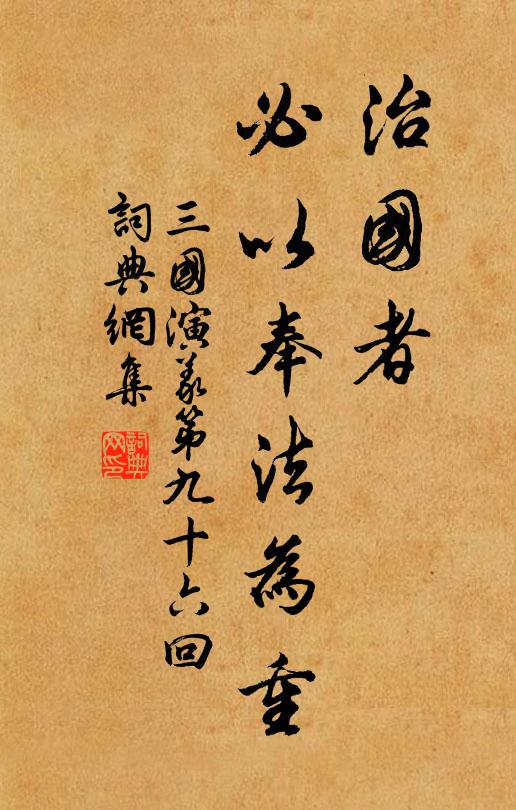 治國者
必以奉法為重
三國演義第九十六回
詞典網集
詞典網印